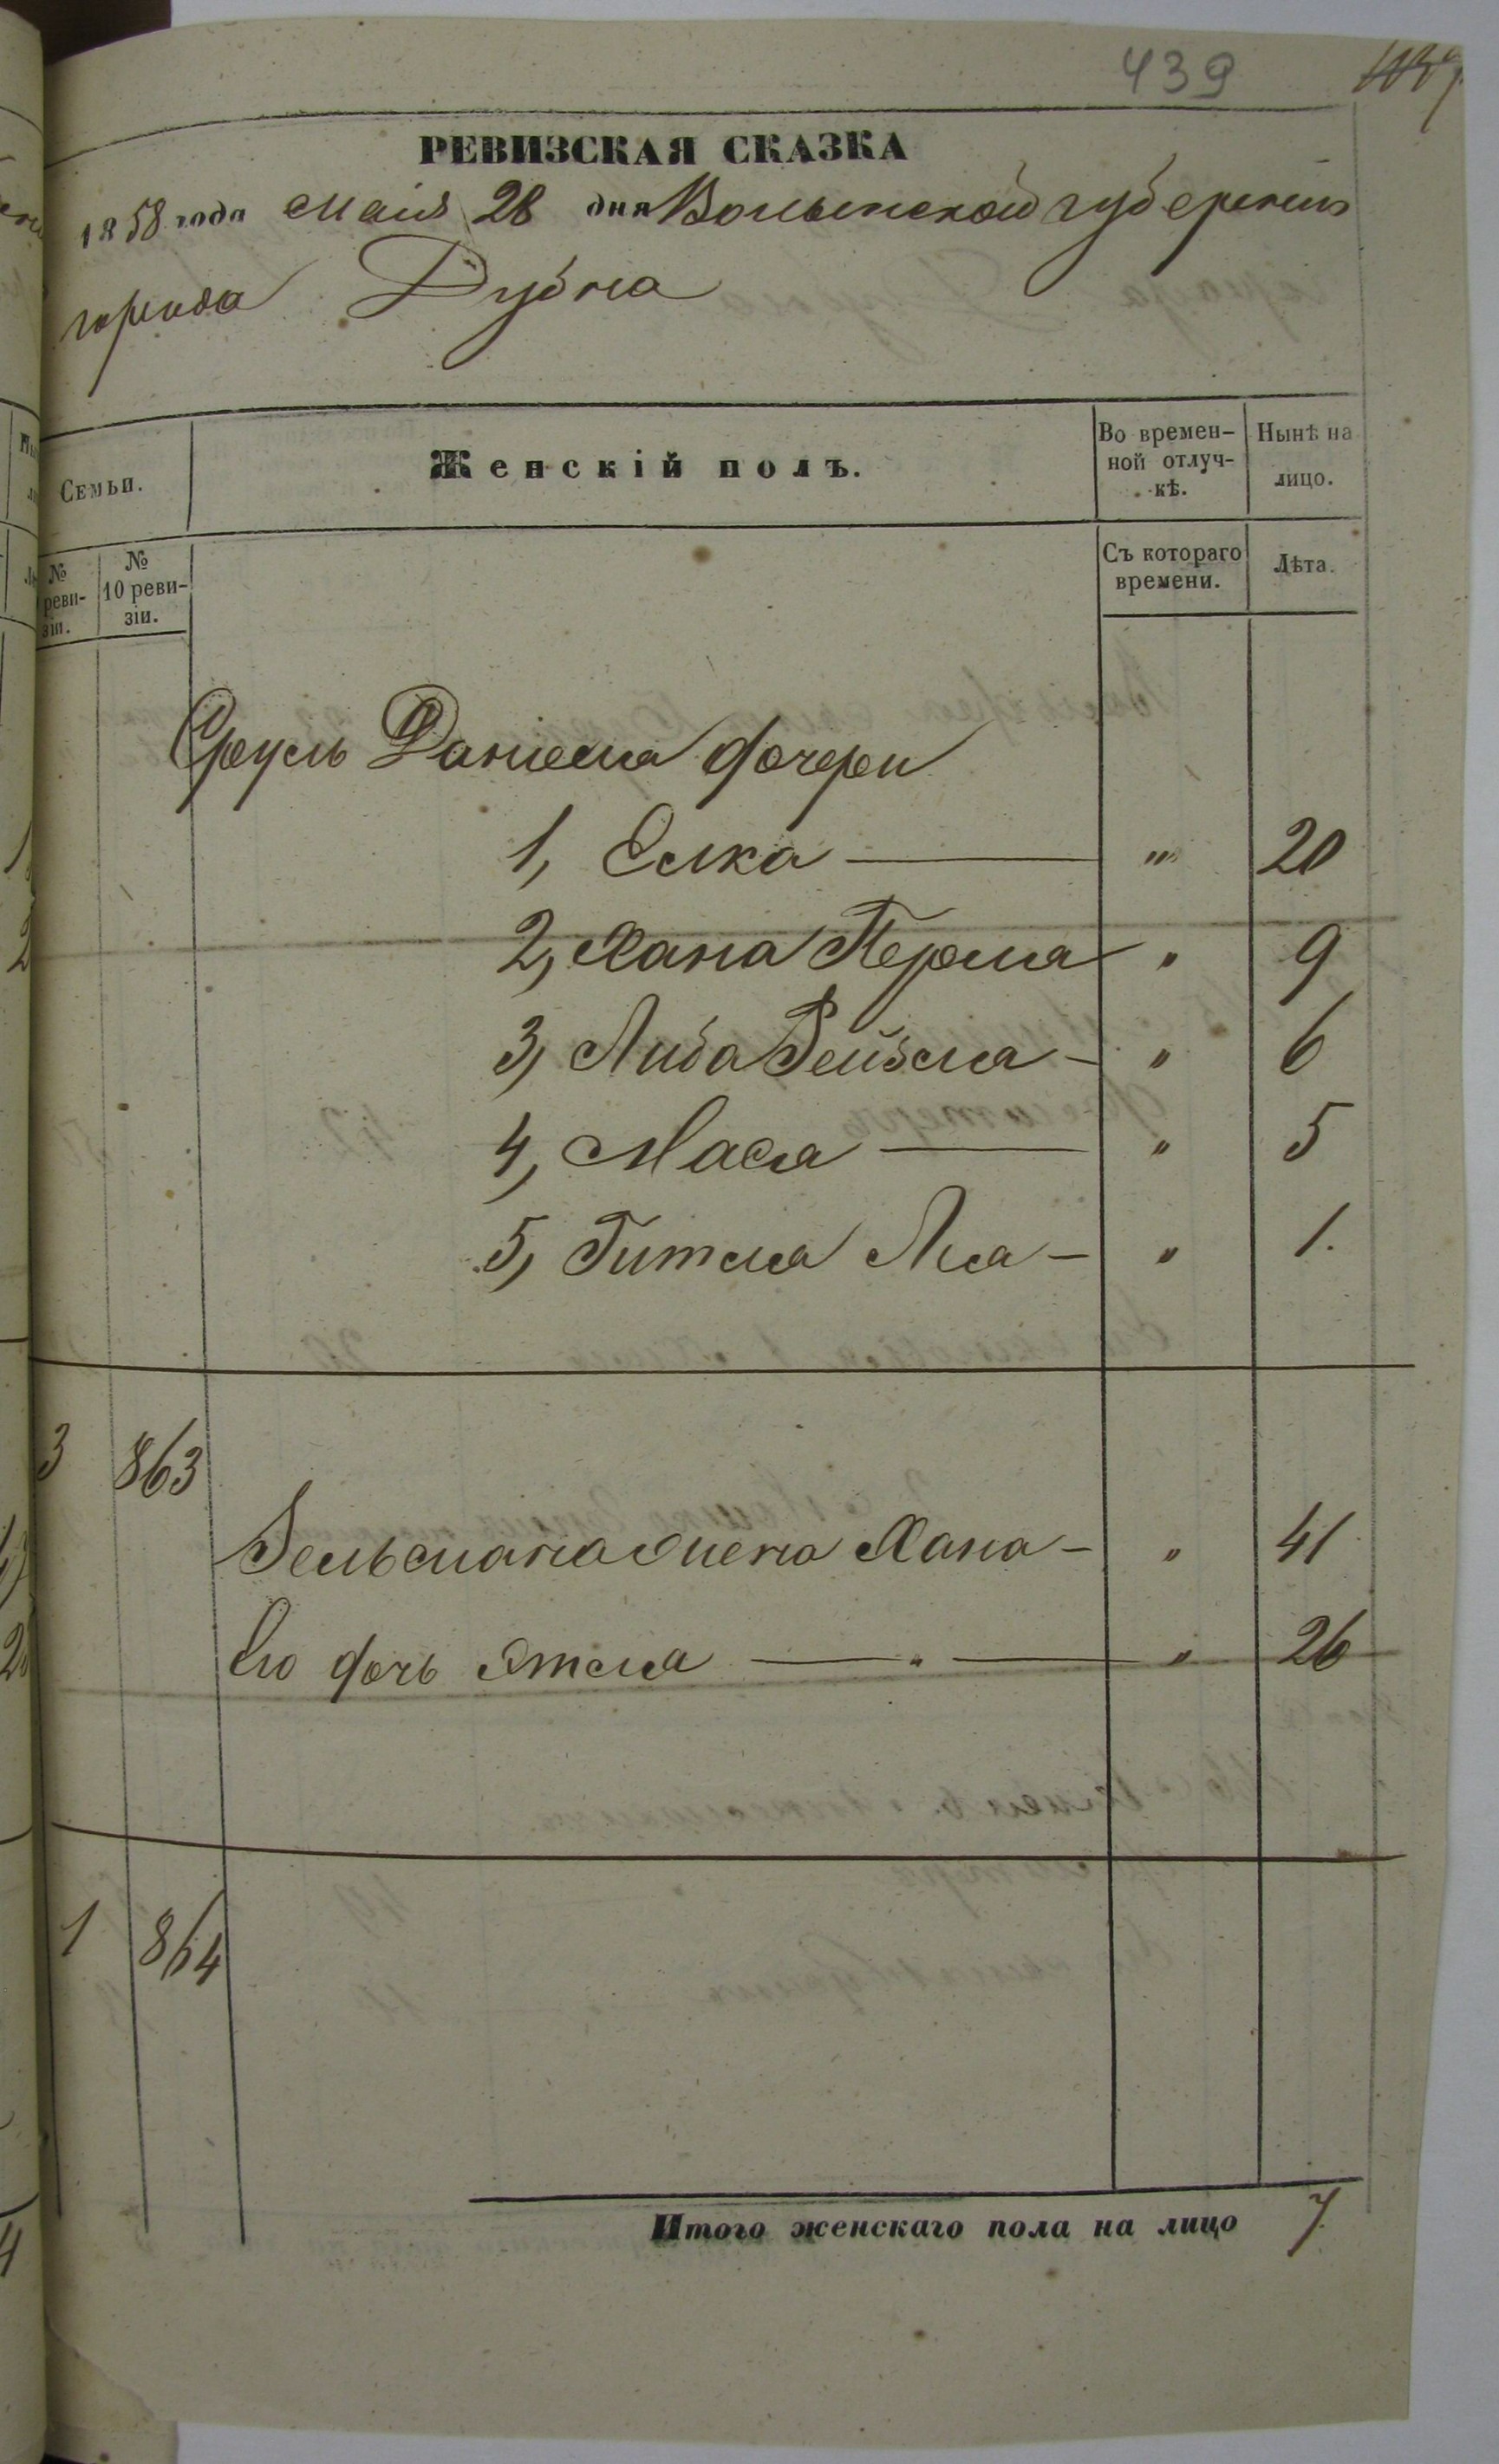 439
РЕВИЗСКАЯ СКАЗКА
1858 года Маія 28 дня Волынской губерніи
города Дубна
Семьи.
Женскій полъ.
Во времен-
ной отлуч-
кѣ.
Нынѣ на
лицо.
№
реви-
зіи.
№
10 реви-
зіи.
Съ котораго
времени.
Лѣта.
Сруль Даніела дочери
1, Елка — „ 20
2, Хана Перла „ 9
3, Либа Рейзля - „ 6
4, Масля — „ 5
5, Гитля Лея - „ 1.
3 863
Зельмана жена Хана - „ 41
Его дочь Этля — „ — „ 26
1 864
Итого женскаго пола на лицо 7